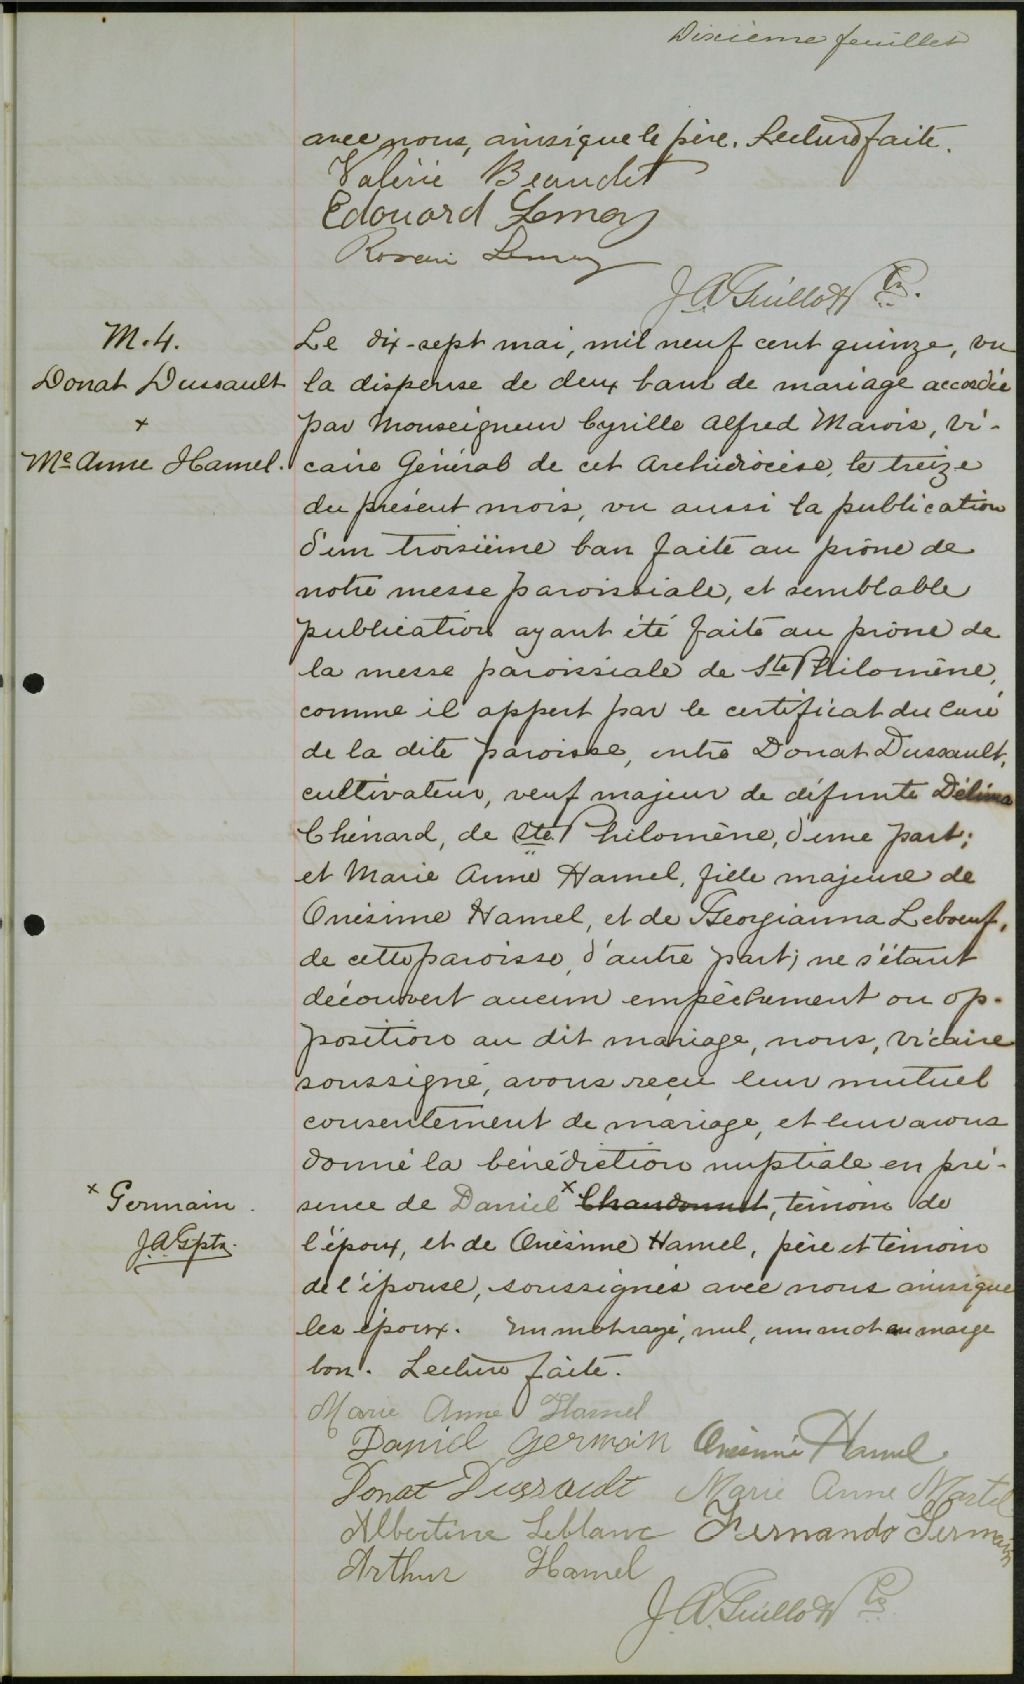 Dixième feuillet
avec nous, ainsi que le père. Lecture faite.
Valérie Beaudet
Edouard Lemay
Rosaire Lemay
J. A. Guillot Ptr.
M. 4.
Donat Dussault
+
Me Anne Hamel.
Le dix-sept mai, mil neuf cent quinze, vu
la dispense de deux bans de mariage accordée
par Monseigneur Cyrille Alfred Marois, Vi-
caire Général de cet Archidiocèse, le treize
du présent mois, vu aussi la publication
d'un troisième ban faite au prône de
notre messe paroissiale, et semblable
publication ayant été faite au prône de
la messe paroissiale de Ste Philomène,
comme il appert par le certificat du Curé
de la dite paroisse, entre Donat Dussault,
cultivateur, veuf majeur de défunte Délima
Chénard, de Ste Philomène, d'une part;
et Marie Anne Hamel, fille majeure de
Onésime Hamel, et de Georgianna Leboeuf,
de cette paroisse, d'autre part; ne s'étant
découvert aucun empêchement ou op-
position au dit mariage, nous, vicaire
soussigné, avons reçu leur mutuel
consentement de mariage, et leur avons
donné la bénédiction nuptiale en pré-
sence de Daniel x Chandonnet, témoin de
x Germain
J.A.G ptr.
l'époux, et de Onésime Hamel, père et témoin
de l'épouse, soussignés avec nous ainsi que
les époux. Un mot rayé, nul, un mot en marge
bon. Lecture faite.
Marie Anne Hamel
Daniel Germain Onésime Hamel
Donat Dussault Marie Anne Martel
Albertine Leblanc Fernando Germain
Arthur Hamel
J. A. Guillot Ptr.